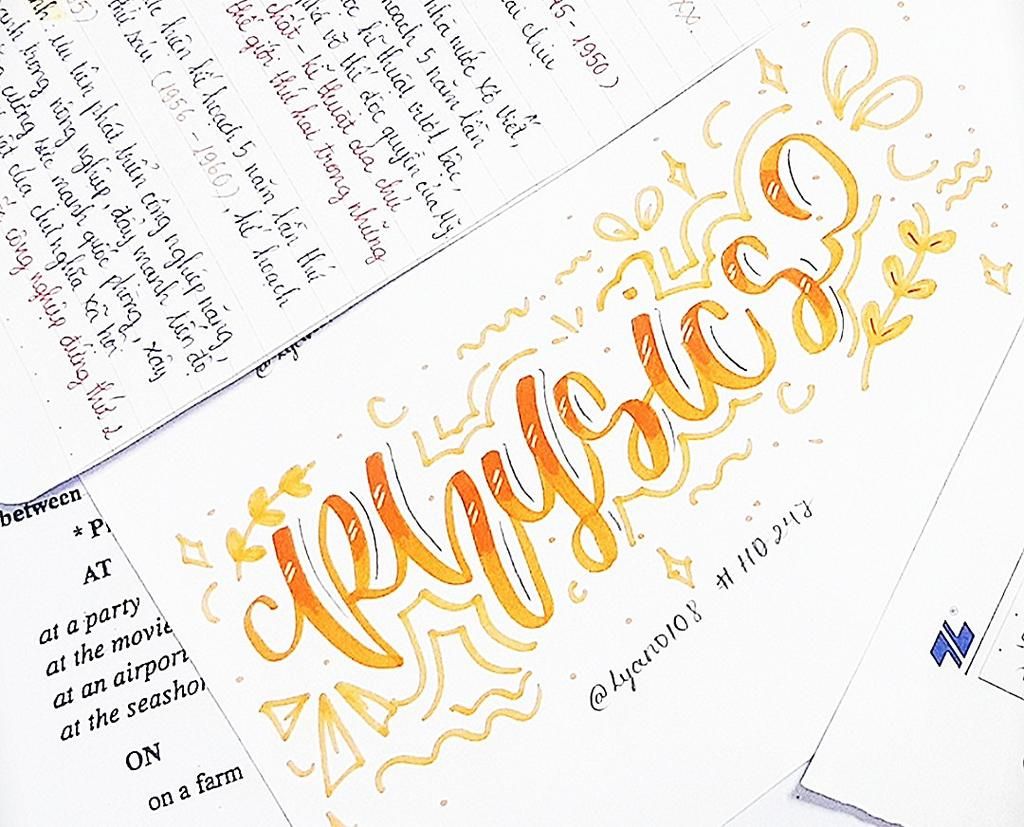 45 - 1950)
XX.
nhà nước Xô Viết,
hoạch 5 năm lần
kĩ thuật vượt bậc,
phá vỡ thế độc quyền của Mỹ
chất - kĩ thuật của chủ
thế giới thứ hai trong những
hiện kế hoạch 5 năm lần thứ
thứ sáu (1956 - 1960), kế hoạch
ưu tiên phát triển công nghiệp nặng,
trong nông nghiệp, đẩy mạnh tiến bộ
cường sức mạnh quốc phòng, xây
của chủ nghĩa xã hội
công nghiệp đứng thứ 2
between
AT
at a party
at the movie
at an airport
at the seashor
ON
on a farm
Physics
@Lyano108 # HD 247